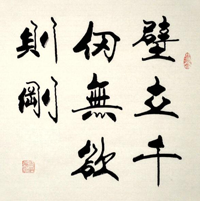 壁立千
仞無欲
則剛